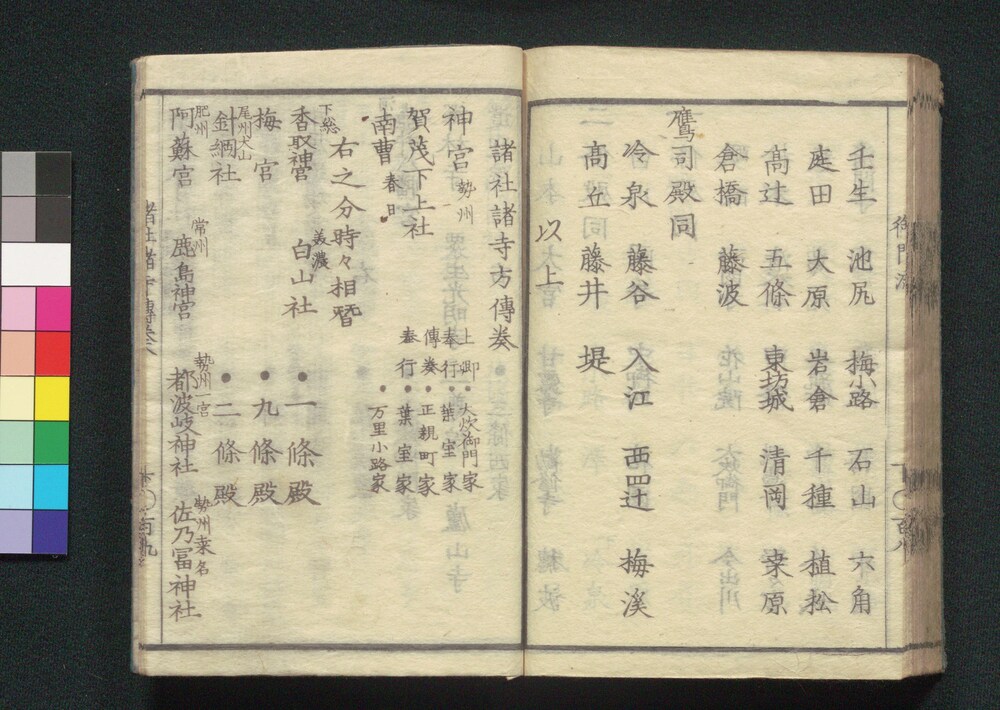 壬生 池尻 梅小路 石山 六角
庭田 大原 岩倉 千種 植松
髙辻 五條 東坊城 清岡 桒原
倉橋 藤波
鷹司殿同
冷泉 藤谷 入江 西四辻 梅溪
髙丘 藤井 堤
以上
諸社諸寺方傳奏
神宮 勢州 上卿 大炊御門家
奉行 葉室家
賀茂下上社 傳奏 正親町家
奉行 葉室家
南曹 春日 万里小路家
右之分時々相替
下総 香取神宮 美濃 白山社 一條殿
梅宮 九條殿
尾州犬山 針綱社 二條殿
肥州 阿蘇宮 常州 鹿島神宮 勢州一宮 都波岐神社 勢州桒名 佐乃冨神社
諸社諸寺傳奏
百九